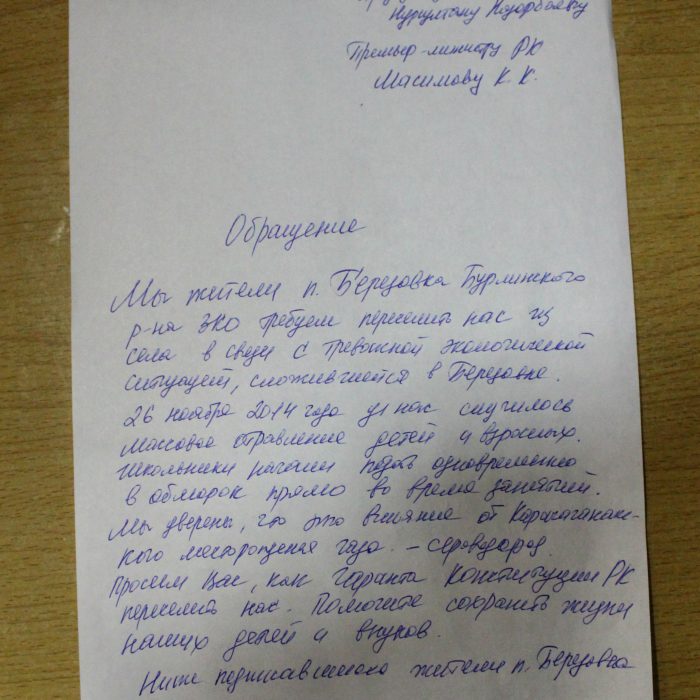 Нурсултану Назарбаеву
Премьер-министру РК
Масимову К. К.
Обращение
Мы жители п. Березовка Бурлинского
р-на ЗКО требуем переселить нас из
села в связи с тревожной экологической
ситуацией, сложившейся в Березовке.
26 ноября 2014 года у нас случилось
массовое отравление детей и взрослых.
Школьники начали падать одновременно
в обморок прямо во время занятий.
Мы уверены, что это влияние от Карачаганакс-
кого месторождения газа. – сероводород.
Просим Вас, как Гаранта Конституции РК
переселить нас. Помогите сохранить жизни
наших детей и внуков.
Ниже подписавшиеся жители п. Березовка